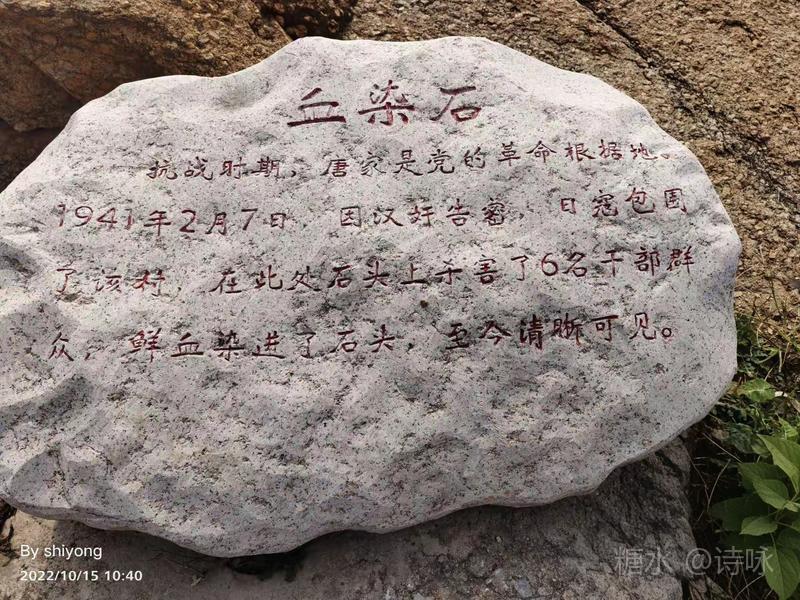 血染石
抗战时期，唐家是党的革命根据地。
1941年2月7日，因汉奸告密，日寇包围
了该村，在此处石头上杀害了6名干部群
众，鲜血染进了石头，至今清晰可见。
By shiyong
2022/10/15 10:40
糖水 @诗咏